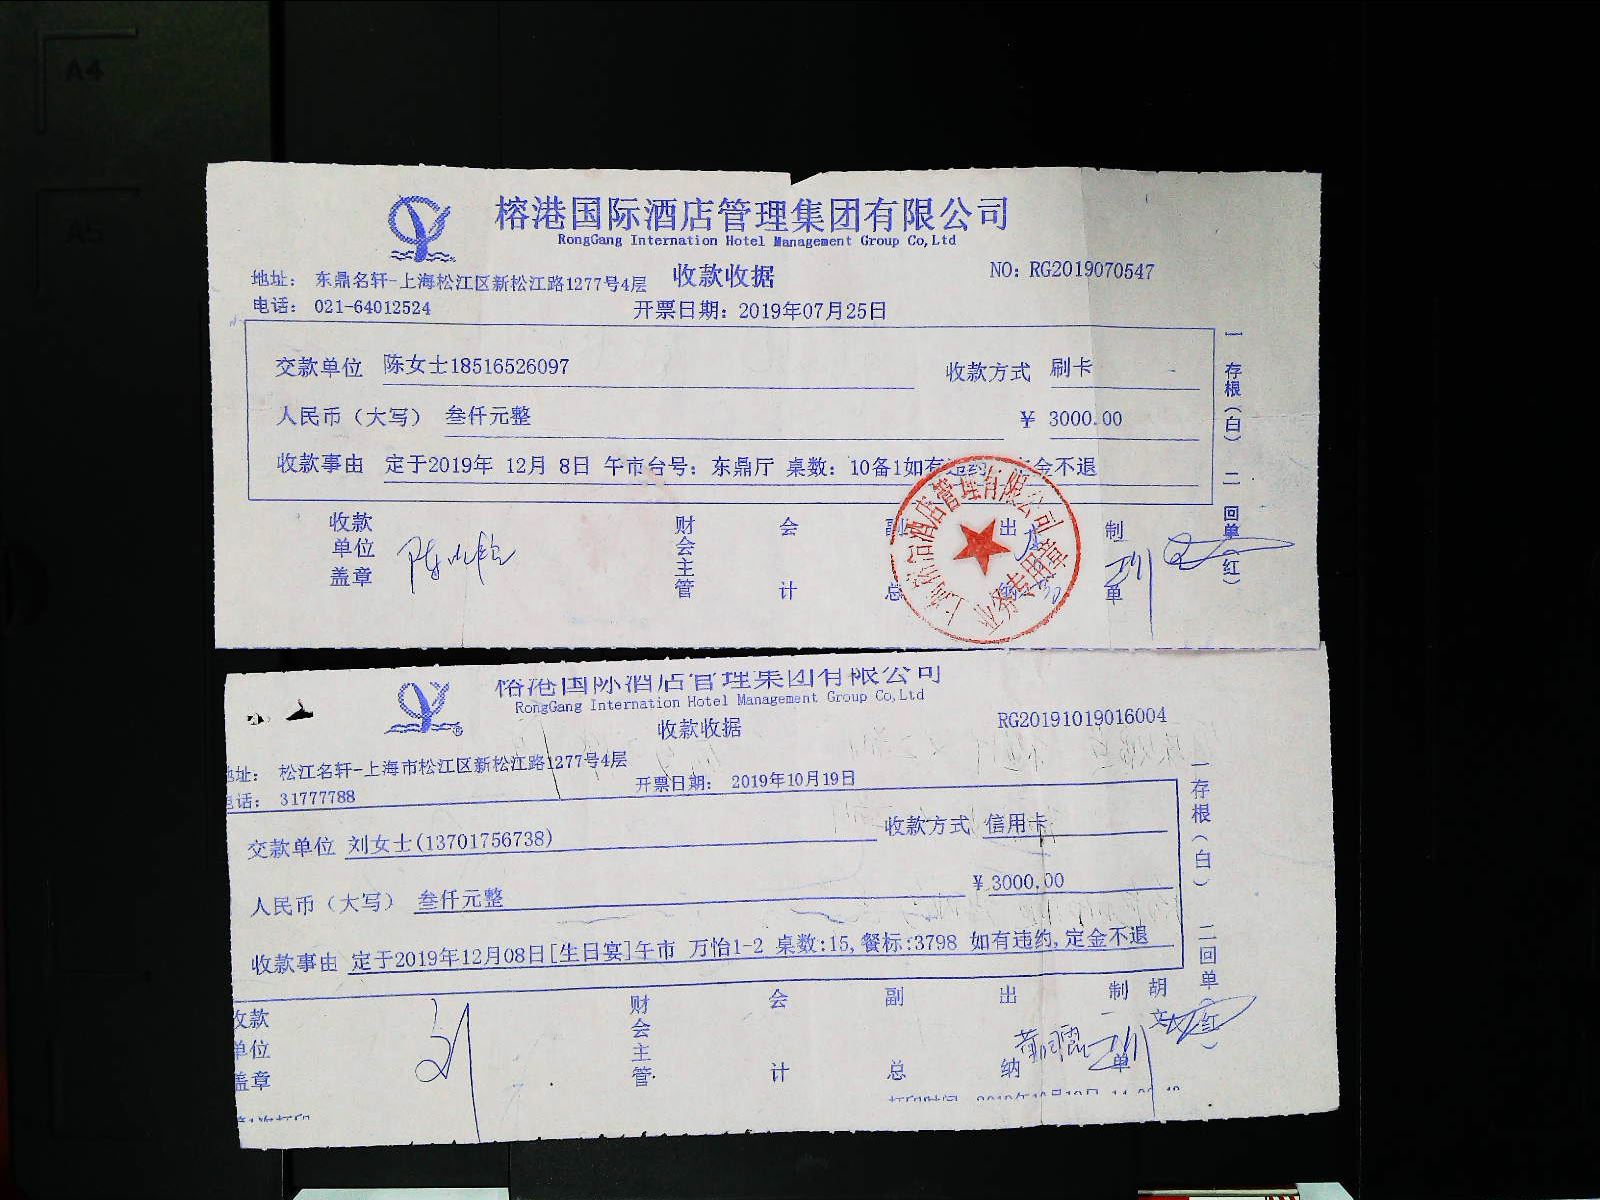 A4
A5
榕港国际酒店管理集团有限公司
RongGang Internation Hotel Management Group Co,Ltd
地址： 东鼎名轩-上海松江区新松江路1277号4层 收款收据 NO: RG2019070547
电话： 021-64012524 开票日期：2019年07月25日
交款单位 陈女士18516526097 收款方式 刷卡
人民币（大写） 叁仟元整 ￥ 3000.00
收款事由 定于2019年 12月 8日 午市台号：东鼎厅 桌数：10备1如有违约 定金不退
一存根（白） 二回单（红）
收款单位盖章 财会主管 会计 副总 出 制单
酒店管理有限公司
业务专用章
榕港国际酒店管理集团有限公司
RongGang Internation Hotel Management Group Co,Ltd
收款收据 RG20191019016004
地址： 松江名轩-上海市松江区新松江路1277号4层
电话： 31777788 开票日期： 2019年10月19日
交款单位 刘女士(13701756738) 收款方式 信用卡
人民币（大写） 叁仟元整 ￥3000.00
收款事由 定于2019年12月08日[生日宴]午市 万怡1-2 桌数:15,餐标:3798 如有违约,定金不退
一存根（白） 二回单（红）
收款单位盖章 刘 财会主管 会计 副总 出纳 制单 胡文